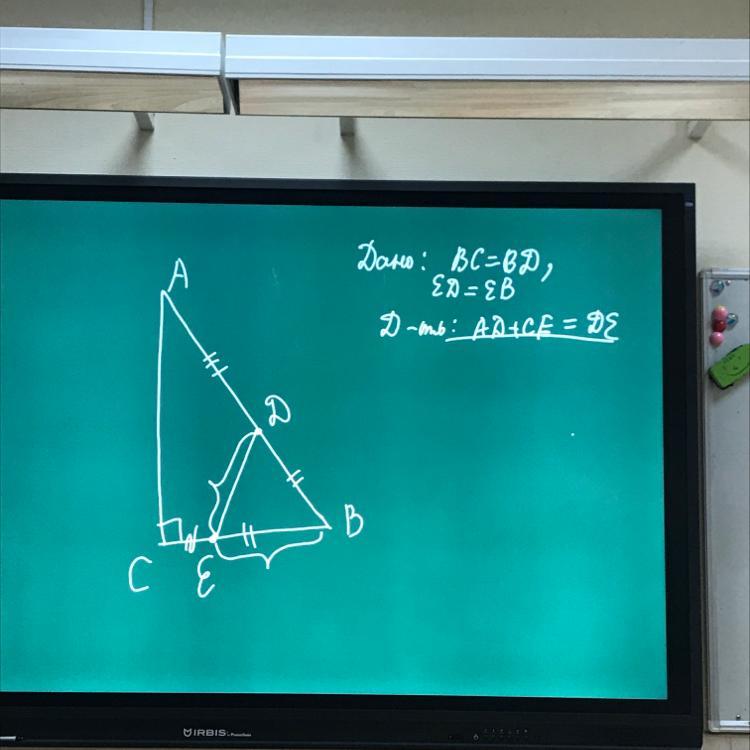 Дано: BC=BD,
ED=EB
Д-ть: AD+CE=DE
A
D
B
C
E
IRBIS